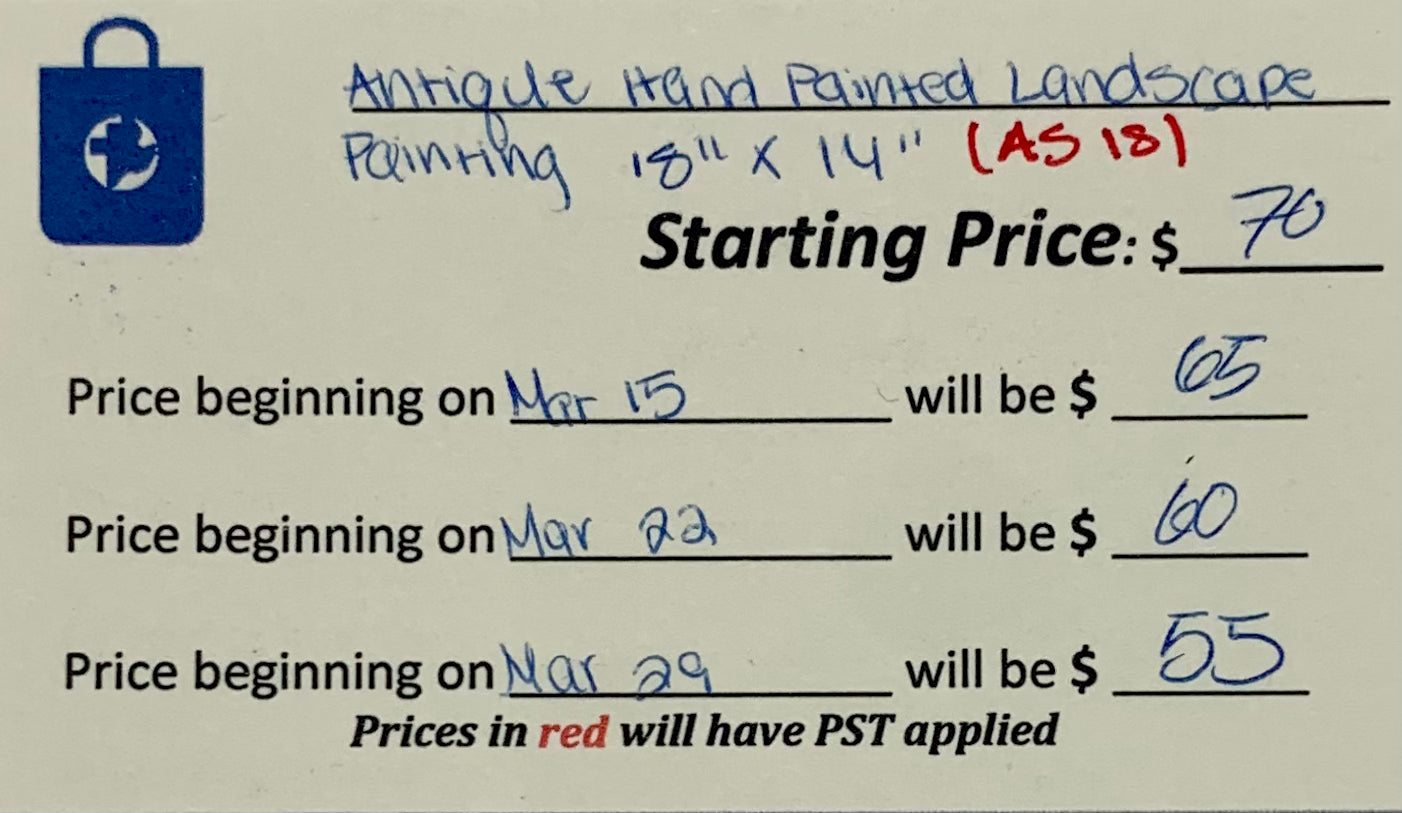 Antique Hand Painted Landscape
Painting 18" x 14" (AS 18)
Starting Price: $ 70
Price beginning on Mar 15 will be $ 65
Price beginning on Mar 22 will be $ 60
Price beginning on Mar 29 will be $ 55
Prices in red will have PST applied